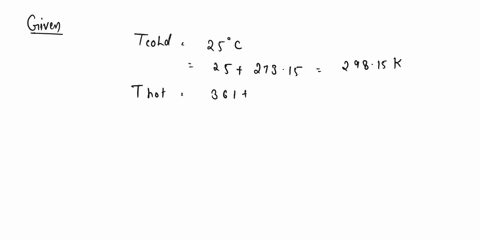 Given
Tcold = 25°C
= 25 + 273.15 = 298.15 K
Thot = 361 +